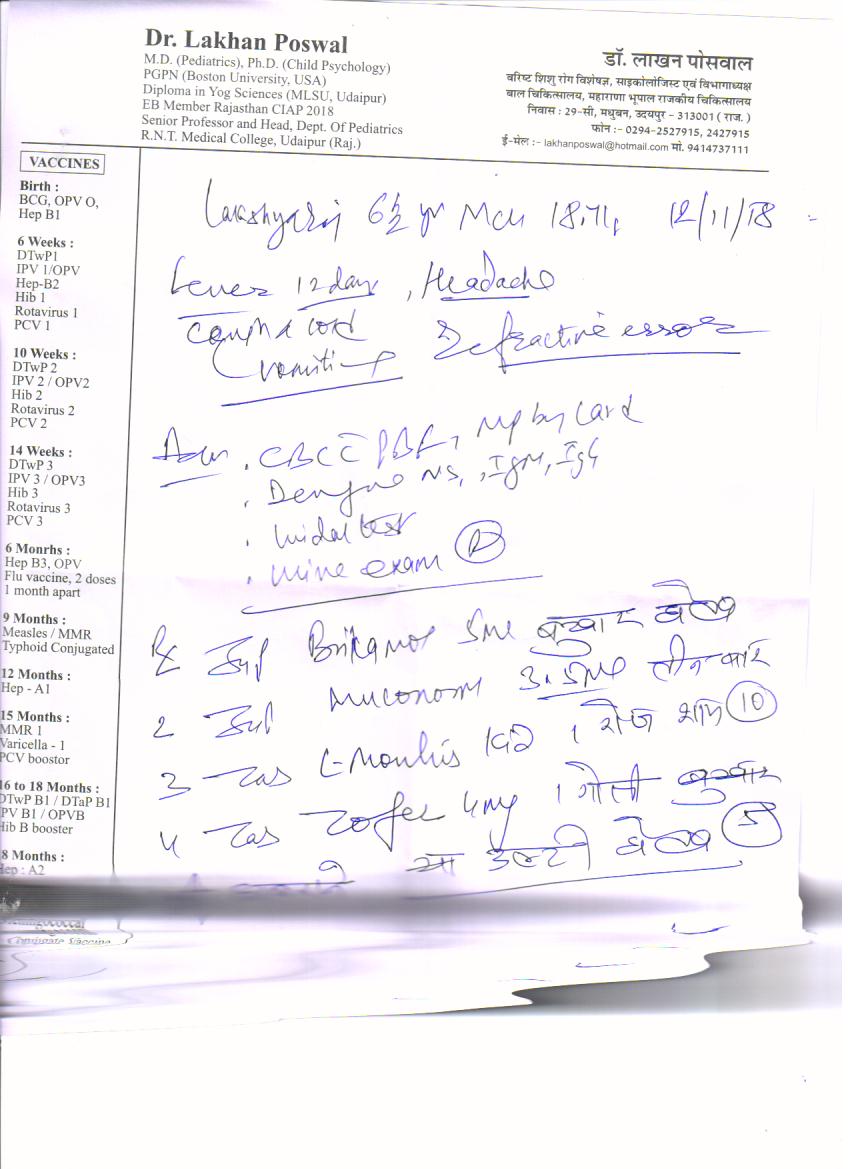 Dr. Lakhan Poswal
M.D. (Pediatrics), Ph.D. (Child Psychology)
PGPN (Boston University, USA)
Diploma in Yog Sciences (MLSU, Udaipur)
EB Member Rajasthan CIAP 2018
Senior Professor and Head, Dept. Of Pediatrics
R.N.T. Medical College, Udaipur (Raj.)
डॉ. लाखन पोसवाल
वरिष्ट शिशु रोग विशेषज्ञ, साइकोलोजिस्ट एवं विभागाध्यक्ष
बाल चिकित्सालय, महाराणा भूपाल राजकीय चिकित्सालय
निवास : 29-सी, मधुबन, उदयपुर - 313001 ( राज. )
फोन :- 0294-2527915, 2427915
ई-मेल :- lakhanposwal@hotmail.com मो. 9414737111
VACCINES
Birth :
BCG, OPV O,
Hep B1
6 Weeks :
DTwP1
IPV 1/OPV
Hep-B2
Hib 1
Rotavirus 1
PCV 1
10 Weeks :
DTwP 2
IPV 2 / OPV2
Hib 2
Rotavirus 2
PCV 2
14 Weeks :
DTwP 3
IPV 3 / OPV3
Hib 3
Rotavirus 3
PCV 3
6 Monrhs :
Hep B3, OPV
Flu vaccine, 2 doses
1 month apart
9 Months :
Measles / MMR
Typhoid Conjugated
12 Months :
Hep - A1
15 Months :
MMR 1
Varicella - 1
PCV boostor
16 to 18 Months :
DTwP B1 / DTaP B1
IPV B1 / OPVB
Hib B booster
8 Months :
Hep : A2
Conjugate Vaccine
Lakshyaraj 6½ yr Mch 12/11/18
Fever 12 day, Headache
Cough & cold
vomiting Refractive error
Adv . CBC c PBF, MP by Card
. Dengue NS1, IgM, IgG
. Widal test
. Urine exam R
Rx Syp 5ml बुखार होने पर
2 Syp 3.5ml तीन बार
3 Tab 1 रोज शाम 10
4 Tab Zofer 4mg 1 गोली
या उल्टी होने पर 5